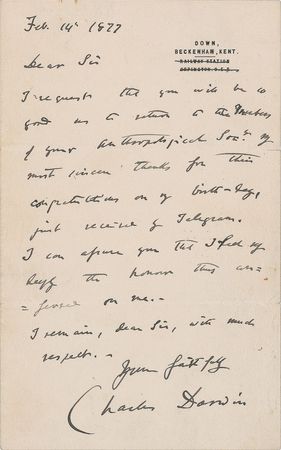 Feb. 14th 1877
DOWN,
BECKENHAM, KENT.
RAILWAY STATION
ORPINGTON. S.E.R.
Dear Sir
I request that you will be so
good as to return to the Members
of your Anthropological Socy. my
most sincere thanks for their
congratulations on my birth-day,
just received by Telegram.
I can assure you that I feel my
deeply the honour thus con-
=ferred on me.—
I remain, dear Sir, with much
respect.—
Yours faithfully
Charles Darwin